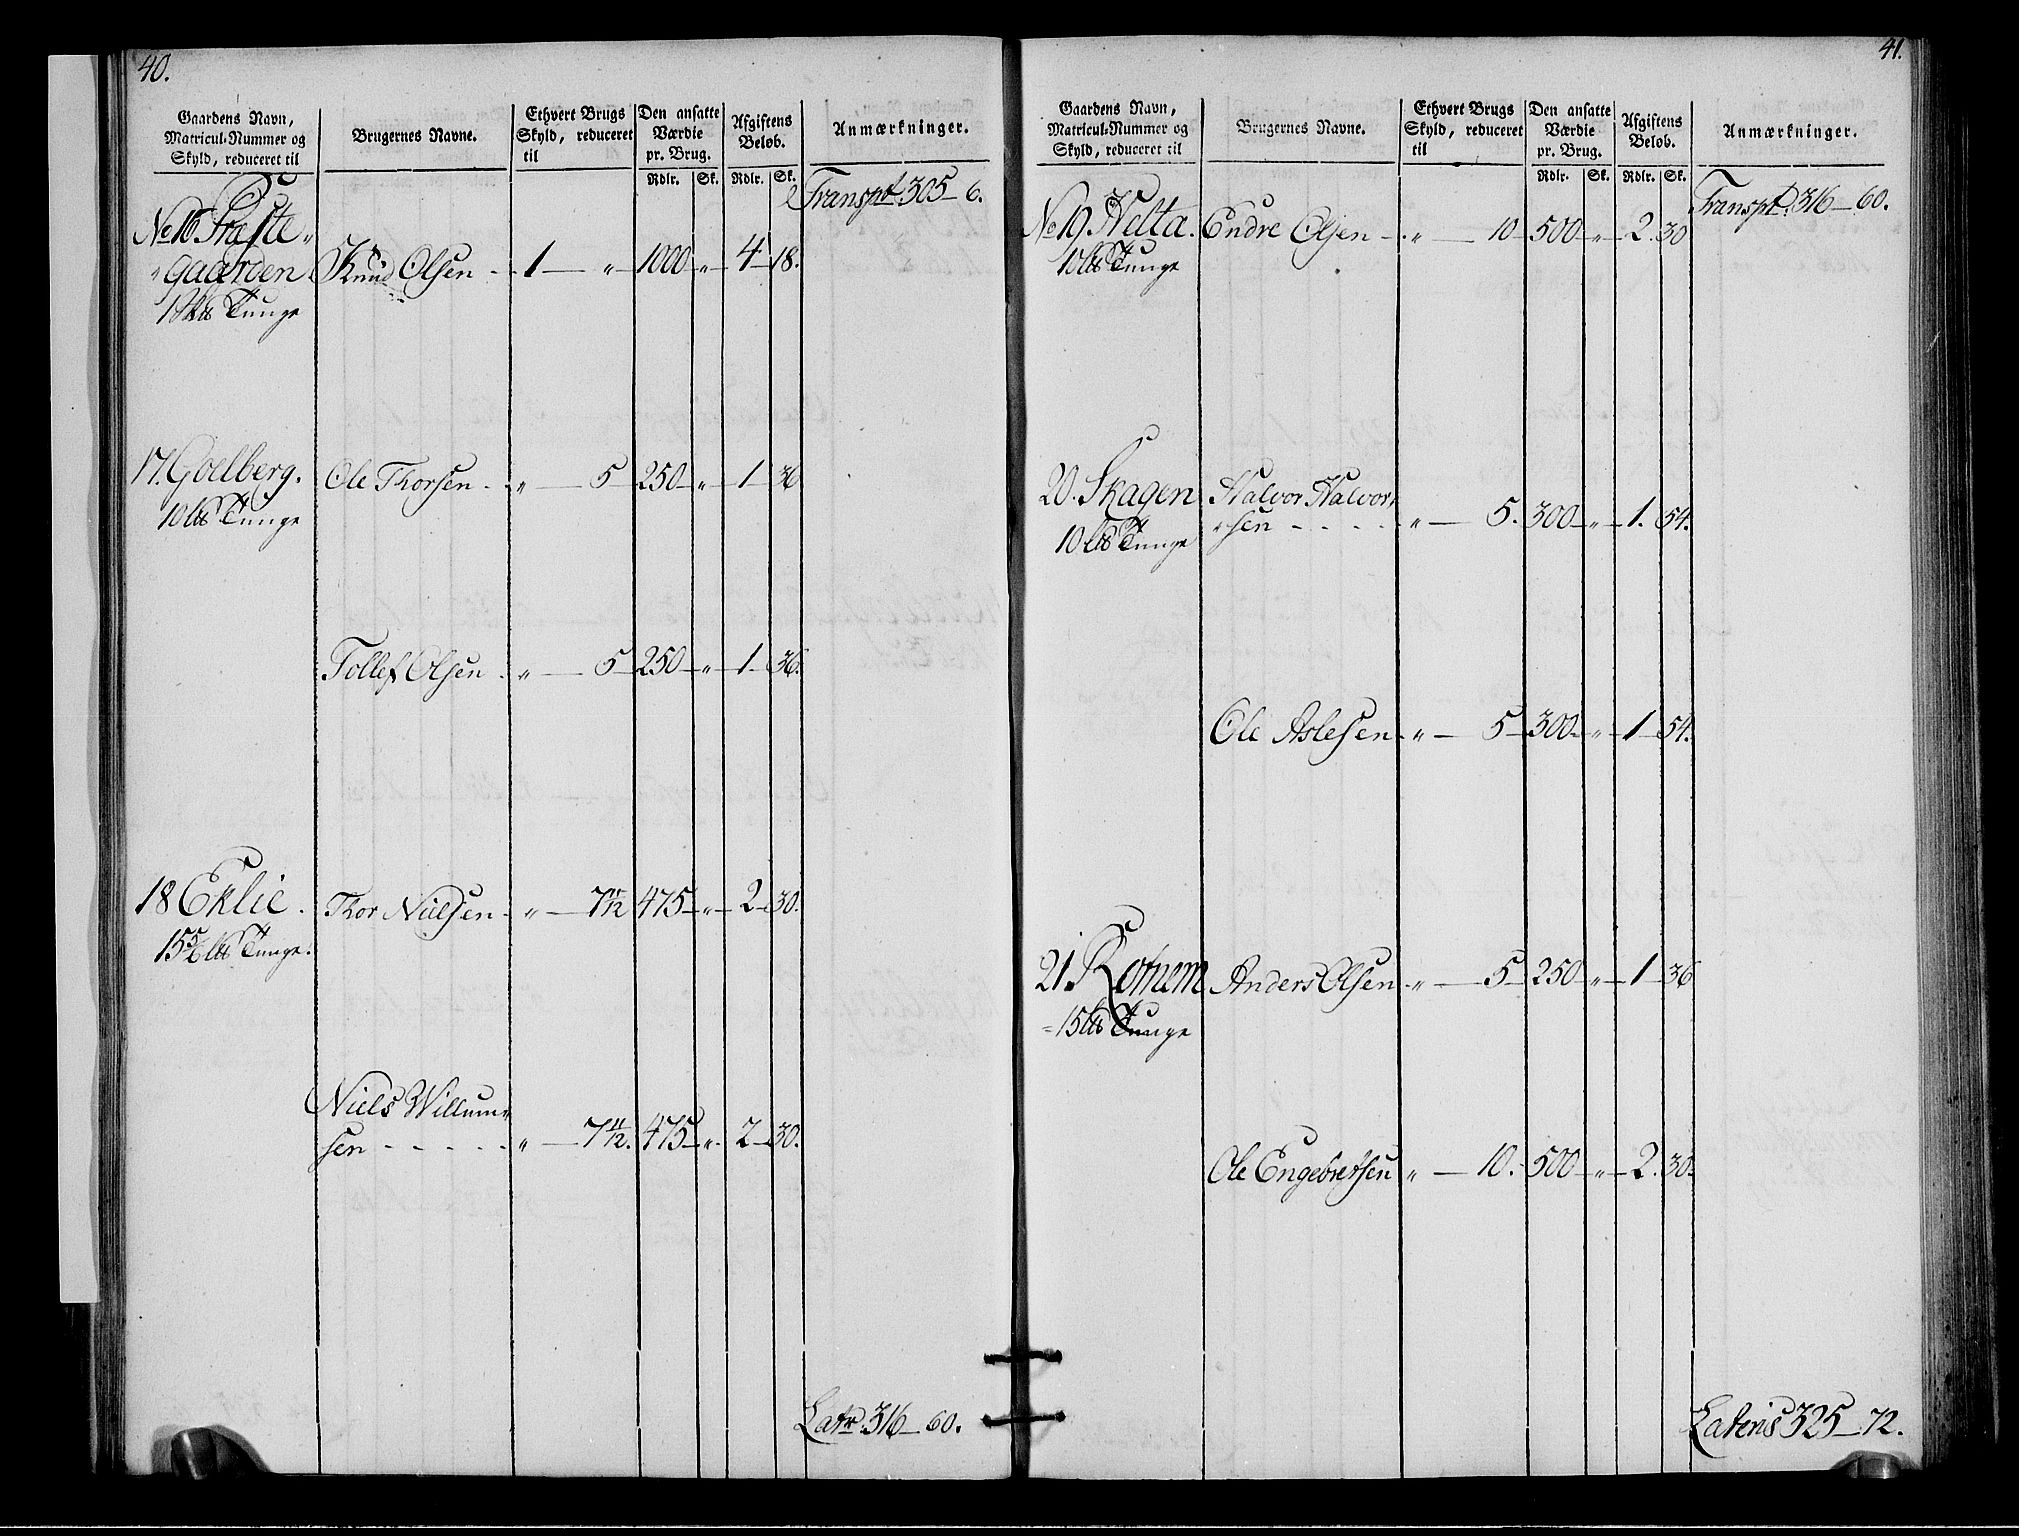 40.
Gaardens Navn,
Matricul-Nummer og
Skyld, reduceret til
Brugernes Navne.
Ethvert Brugs
Skyld, reduceret
til
Den ansatte
Værdie
pr. Brug.
Rdlr. Sk.
Afgiftens
Beløb.
Rdlr. Sk.
Anmærkninger.
Transpt 305 – 6.
No 16 Præste„
„gaarden Knud Olsen - . 1 — „ 1000 „ 4 18.
1 Tunge
17. Goelberg. Ole Thorsen - . „ — 5 250 „ 1 36
10 lb Tunge
Tollef Olsen . „ — 5 250 „ 1 36.
18 Eklie . Thor Nielsen . „ — 7 11/12 475 „ 2 30.
15 5/6 lb Tunge.
Niels Willum„
sen - - - - - „ — 7 11/12. 475 „ 2 30.
Latr. 316 – 60.
41.
Gaardens Navn,
Matricul-Nummer og
Skyld, reduceret til
Brugernes Navne.
Ethvert Brugs
Skyld, reduceret
til
Den ansatte
Værdie
pr. Brug.
Rdlr. Sk.
Afgiftens
Beløb.
Rdlr. Sk.
Anmærkninger.
Transpt. 316 – 60.
No 19 Velta. Endre Olsen - . „ — 10 500 „ 2. 30
10 lb Tunge
20. Skagen Halvor Halvor„
„sen - - - - - „ — 5. 300 „ 1. 54.
10 lb Tunge
Ole Aslesen . „ — 5 300 „ 1 54.
21. Rotnem Anders Olsen . „ — 5 250 „ 1 36
= 15 lb Tunge
Ole Engebretsen „ — 10. 500 „ 2. 30.
Lateris 325 – 72.